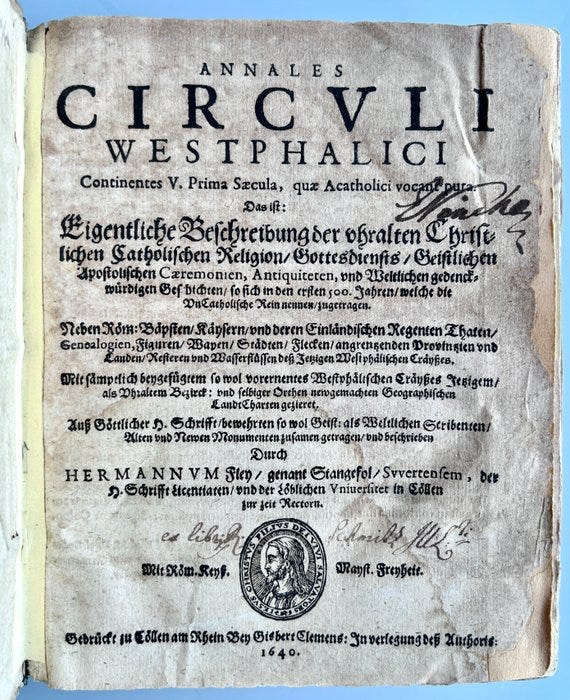 ANNALES
CIRCVLI
WESTPHALICI
Continentes V. Prima Sæcula, quæ Acatholici vocant pura.
Das ist:
Eigentliche Beschreibung der vhralten Christ-
lichen Catholischen Religion/ Gottesdiensts/ Geistlichen
Apostolischen Cæremonien, Antiquiteten, vnd Weltlichen gedenck-
würdigen Geschichten/ so sich in den ersten 500. Jahren/ welche die
VnCatholische Rein nennen/ zugetragen.
Neben Röm: Bäpsten/ Käysern/ vnd deren Einländischen Regenten Thaten/
Genealogien, Figuren/ Wapen/ Städten/ Flecken/ angrentzenden Provintzien vnd
Landen/ Refieren vnd Wasserflüssen deß Jetzigen Westphälischen Cräyßes.
Mit sämptlich beygefügtem so wol vorernentes Westphälischen Cräyßes Jetzigem/
als Vhraltem Bezirck: vnd selbiger Orthen newgemachten Geographischen
LandtCharten gezieret.
Auß Göttlicher H. Schrifft/ bewehrten so wol Geist: als Weltlichen Scribenten/
Alten vnd Newen Monumenten zusamen getragen/ vnd beschrieben
Durch
HERMANNVM Fley/ genant Stangefol/ Svvertensem, der
H. Schrifft Licentiaten/ vnd der Löblichen Vniversitet in Cöllen
zur zeit Rectorn.
ex libris Schmidts
Mit Röm. Keyß. Mayst. Freyheit.
Gedrückt zu Cöllen am Rhein Bey Gisbert Clemens: In verlegung deß Authoris:
1640.